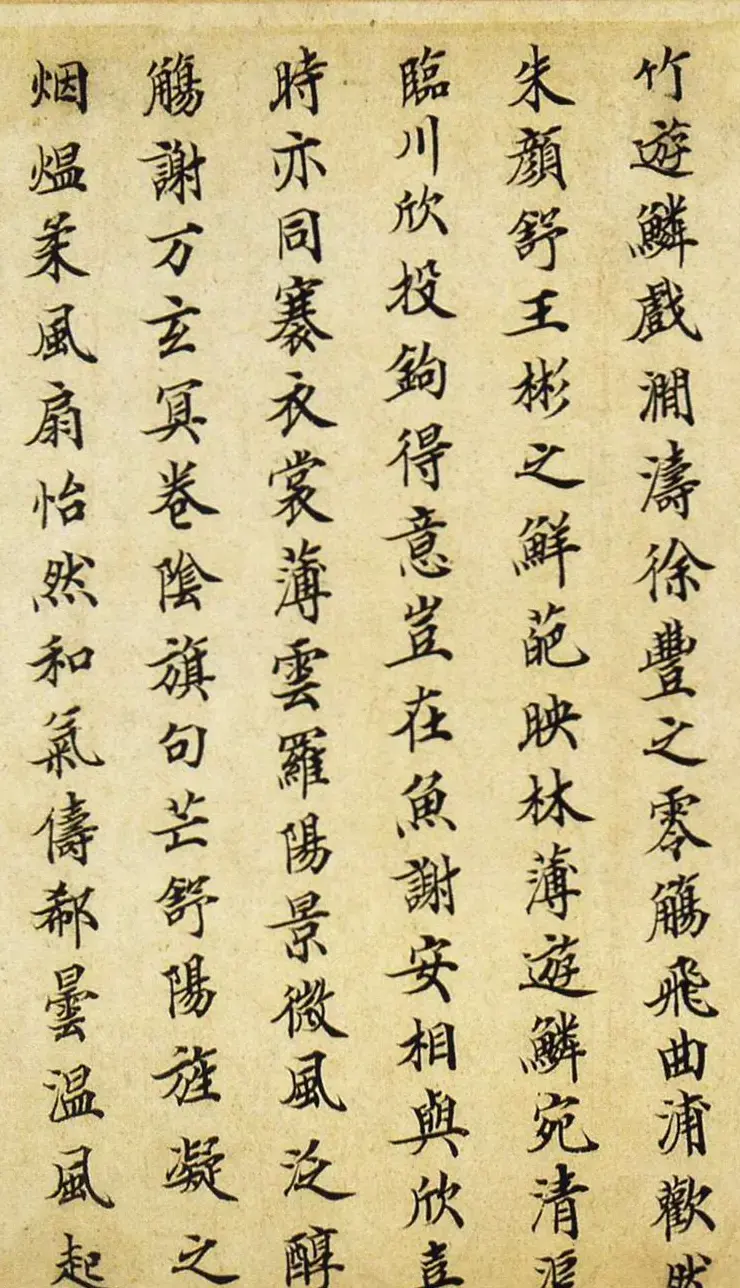 竹遊鱗戲澗濤徐豐之零觴飛曲浦歡然
朱顏舒王彬之鮮葩映林薄遊鱗宛清
臨川欣投鉤得意豈在魚謝安相與欣
時亦同褰衣裳薄雲羅陽景微風泛醇
觴謝万玄冥卷陰旗句芒舒陽旌凝之
烟熅柔風扇怡然和氣儔郗曇温風起